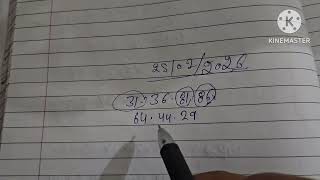 KINEMASTER
25/07/2026
31, 36. 81, 86
64. 44. 29